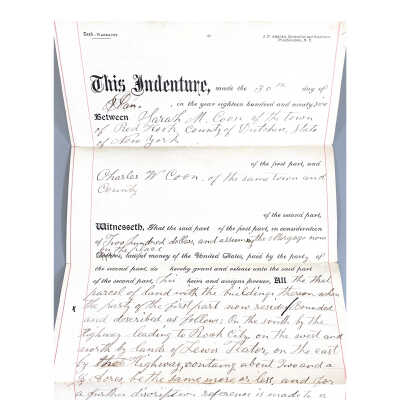 Deed.—Warranty
This Indenture, made the 30th day of
Jan. in the year eighteen hundred and ninety
Between Sarah M. Coon of the town
of Red Hook County of Dutchess, State
of New York
of the first part, and
Charles W Coon, of the same town and
County
of the second part,
Witnesseth, That the said part of the first part, in consideration
of Two hundred dollars, and the Mortgage now
on the place
lawful money of the United States, paid by the party of
the second part, do hereby grant and release unto the said part
of the second part, his heirs and assigns forever, All the that
parcel of land with the buildings thereon where
the party of the first part now resides Bounded
and described as follows; On the south by the
Highway leading to Rock City on the west and
north by lands of Lewis Flater, on the east
by the Highway, containg about Two and a
Acres, be the same more or less, and for
a further reference is made to a